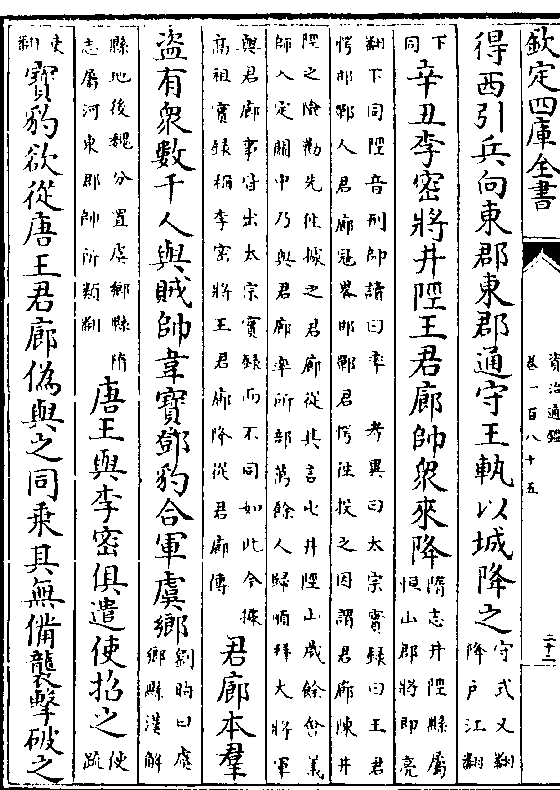 欽定四庫全書
資治通鑑
卷一百八十五
得西引兵向東郡東郡通守王軌以城降之
守式又翻
降戶江翻
下
同
辛丑李密將井陘王君廓帥衆來降
隋志井陘縣屬
恒山郡將即亮
翻下同陘音刑帥讀曰率 考異曰太宗實録曰王君
愕邯鄲人君廓冦畧邯鄲君愕往投之因謂君廓陳井
陘之險勸先往據之君廓從其言屯井陘山歲餘會義
師入定關中乃與君廓率所部萬餘人歸順拜大將軍
與君廓事皆出太宗實録而不同如此今據
高祖實録稱李密將王君廓降從君廓傳
君廓本羣
盗有衆數千人與賊帥韋寶鄧豹合軍虞鄉
劉昫曰虞
鄉縣漢解
縣地後魏分置虞鄉縣隋
志屬河東郡帥所類翻
唐王與李密俱遣使招之
使
疏
吏
翻
寶豹欲從唐王君廓偽與之同乘其無備襲擊破之